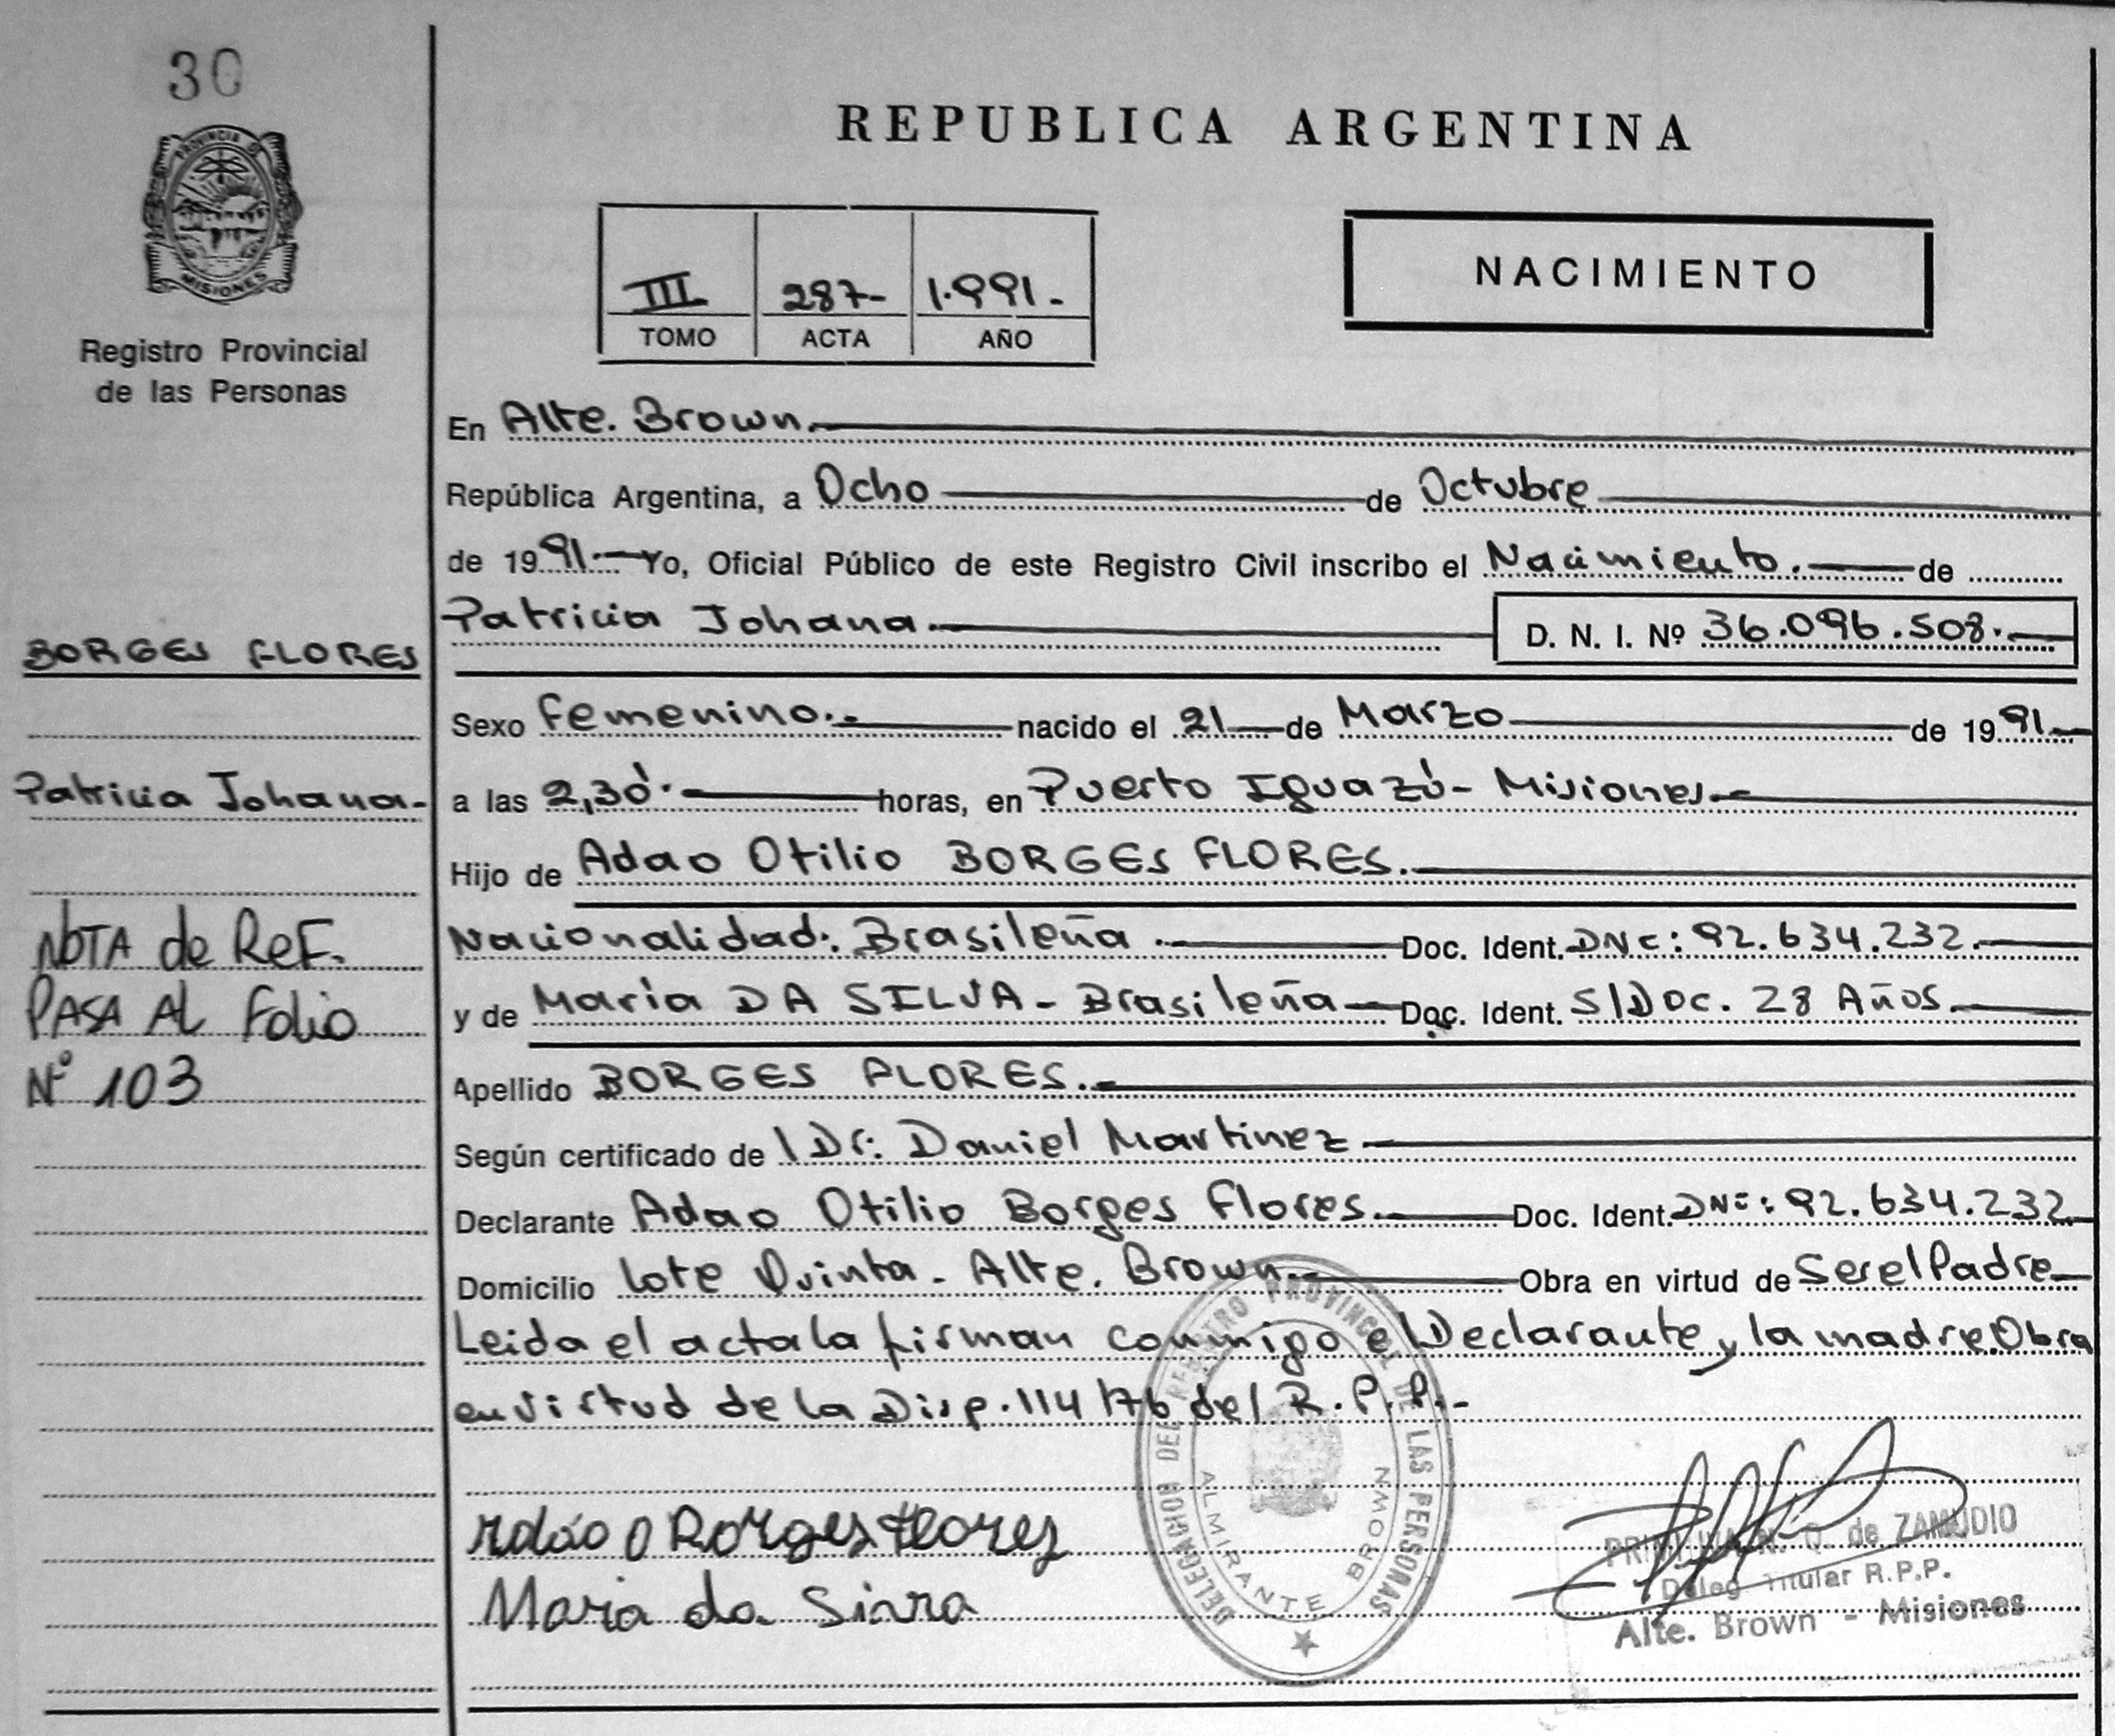 30
PROVINCIA DE
MISIONES
Registro Provincial
de las Personas
BORGES FLORES
Patricia Johana-
NOTA de REF.
PASA AL Folio
N° 103
REPUBLICA ARGENTINA
III 287- 1.991.-
TOMO ACTA AÑO
NACIMIENTO
En Alte. Brown.
República Argentina, a Ocho de Octubre
de 1991.- Yo, Oficial Público de este Registro Civil inscribo el Nacimiento. de
Patricia Johana. D. N. I. Nº 36.096.508.-
Sexo femenino.- nacido el 21 de Marzo de 1991
a las 2,30. horas, en Puerto Iguazú - Misiones.-
Hijo de Adao Otilio BORGES FLORES.
Nacionalidad: Brasileña.- Doc. Ident. DNE: 92.634.232.
y de Maria DA SILVA - Brasileña Doc. Ident. S/Doc. 28 Años.
Apellido BORGES FLORES.-
Según certificado de l Dr: Daniel Martinez
Declarante Adao Otilio Borges Flores. Doc. Ident. DNE: 92.634.232
Domicilio Lote Quinta - Alte. Brown.- Obra en virtud de Ser el Padre
Leida el acta la firman conmigo el Declarante y la madre. Obra
en virtud de la Disp. 114/76 del R.P.P.-
DELEGACION DEL REGISTRO PROVINCIAL DE LAS PERSONAS
ALMIRANTE BROWN
Adão O Borges Flores
Maria da Sirra
N. Q. de ZAMUDIO
Deleg Titular R.P.P.
Alte. Brown - Misiones